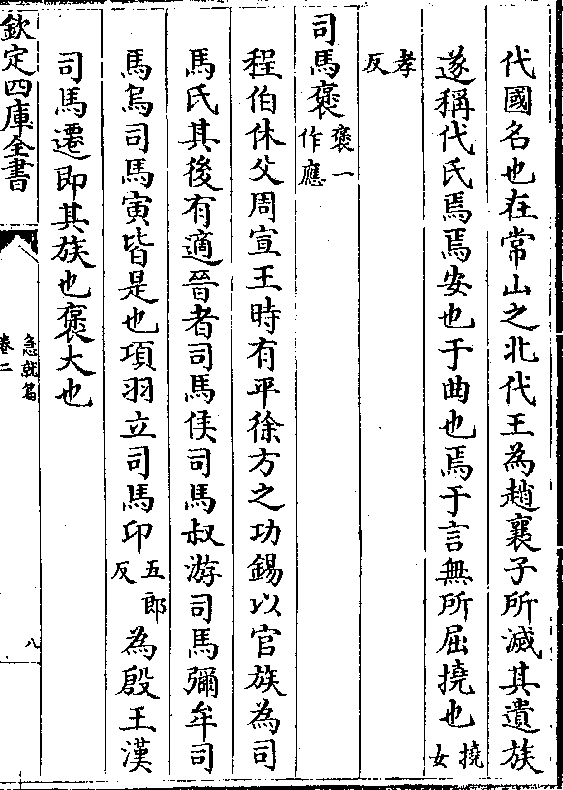 代國名也在常山之北代王為趙襄子所滅其遺族
遂稱代氏焉焉安也于曲也焉于言無所屈撓也撓女
孝反
司馬褒褒一作應
程伯休父周宣王時有平徐方之功錫以官族為司
馬氏其後有適晉者司馬侯司馬叔游司馬彌牟司
馬烏司馬寅皆是也項羽立司馬卬五郎反為殷王漢
司馬遷即其族也褒大也
欽定四庫全書
急就篇
卷二
八